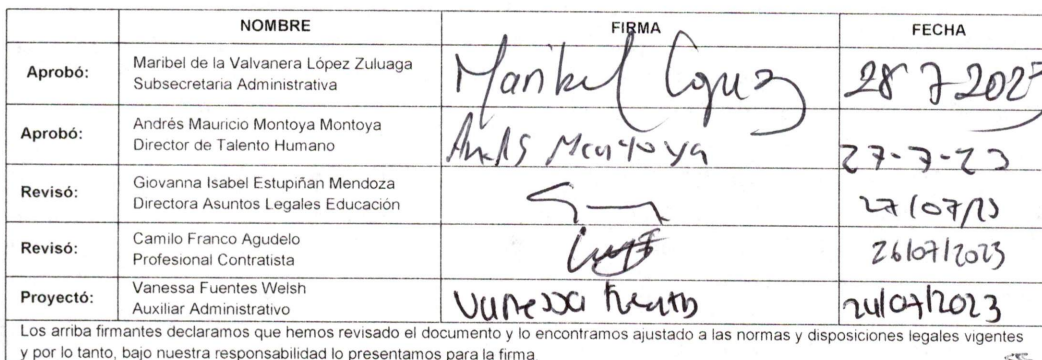 NOMBRE FIRMA FECHA
Aprobó: Maribel de la Valvanera López Zuluaga
Subsecretaria Administrativa
Maribel López 28 7 2023
Aprobó: Andrés Mauricio Montoya Montoya
Director de Talento Humano
Andrés Montoya 27-7-23
Revisó: Giovanna Isabel Estupiñan Mendoza
Directora Asuntos Legales Educación
27/07/23
Revisó: Camilo Franco Agudelo
Profesional Contratista
26/07/2023
Proyectó: Vanessa Fuentes Welsh
Auxiliar Administrativo
Vanessa Fuentes 24/07/2023
Los arriba firmantes declaramos que hemos revisado el documento y lo encontramos ajustado a las normas y disposiciones legales vigentes
y por lo tanto, bajo nuestra responsabilidad lo presentamos para la firma.